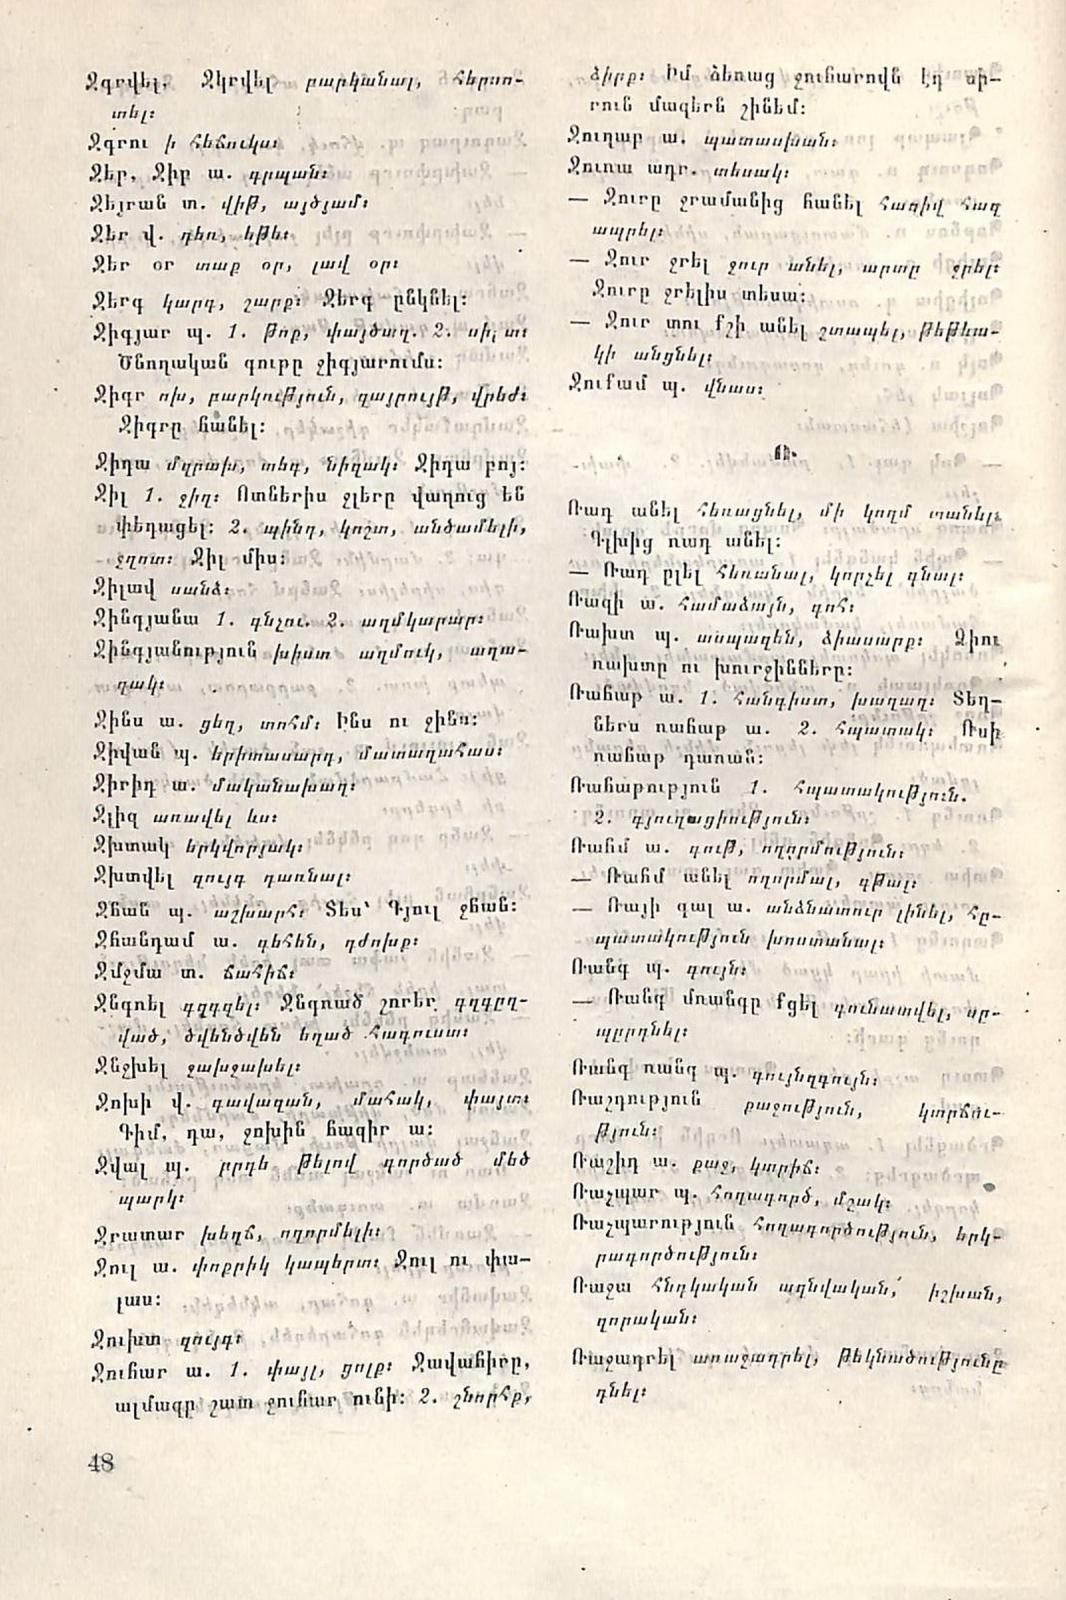 Ջգրվել, Ջկրվել բարկանալ, հերսո-
տել։
Ջգրու ի հեճուկս։
Ջեբ, Ջիբ ա. գրպան։
Ջեյրան տ. վիթ, այծյամ։
Ջեր վ. դեռ, եթե։
Ջեր օր տաք օր, լավ օր։
Ջերգ կարգ, շարք։ Ջերգ ընկնել։
Ջիգյար պ. 1. թոք, փայծաղ. 2. սիրտ։
Ծնողական գութը ջիգյարումս։
Ջիգր ոխ, բարկություն, զայրույթ, վրեժ։
Ջիգրը հանել։
Ջիդա մզրախ, տեգ, նիզակ։ Ջիդա բոյ։
Ջիլ 1. ջիղ։ Ոտներիս ջլերը վաղուց են
փեղացել։ 2. պինդ, կոշտ, անծամելի,
ջղոտ։ Ջիլ միս։
Ջիլավ սանձ։
Ջինգյանա 1. գնչու. 2. աղմկարար։
Ջինգյանություն խիստ աղմուկ, աղա-
ղակ։
Ջինս ա. ցեղ, տոհմ։ Ինս ու ջինս։
Ջիվան պ. երիտասարդ, մատաղահաս։
Ջիրիդ ա. մականախաղ։
Ջլիզ առավել ևս։
Ջխտակ երկվորյակ։
Ջխտվել զույգ դառնալ։
Ջհան պ. աշխարհ։ Տես՝ Գյուլ ջհան։
Ջհանդամ ա. գեհեն, դժոխք։
Ջմջմա տ. ճահիճ։
Ջնգռել գզգզել։ Ջնգռած շորեր գզգըզ-
ված, ծվենծվեն եղած հագուստ։
Ջնջխել ջախջախել։
Ջոխի վ. գավազան, մահակ, փայտ։
Գիմ, դա, ջոխին հազիր ա։
Ջվալ պ. բրդե թելով գործած մեծ
պարկ։
Ջրատար խեղճ, ողորմելի։
Ջուլ ա. փոքրիկ կապերտ։ Ջուլ ու փա-
լաս։
Ջուխտ զույգ։
Ջուհար ա. 1. փայլ, ցոլք։ Ջավահիրը,
ալմազը շատ ջուհար ունի։ 2. շնորհք,
ձիրք։ Իմ ձեռաց ջուհարովն էդ սի-
րուն մազերն շինեմ։
Ջուղաբ ա. պատասխան։
Ջուռա ադր. տեսակ։
— Ջուրը ջրամանից հանել հազիվ հազ
ապրել։
— Ջուր ջրել ջուր անել, արտը ջրել։
Ջուրը ջրելիս տեսա։
— Ջուր տու քշի անել շտապել, թեթևա-
կի անցնել։
Ջուքամ պ. վնաս։
Ռ
Ռադ անել հեռացնել, մի կողմ տանել։
Գլխից ռադ անել։
— Ռադ ըլել հեռանալ, կորչել գնալ։
Ռազի ա. համաձայն, գոհ։
Ռախտ պ. ասպազեն, ձիասարք։ Ձիու
ռախտը ու խուրջինները։
Ռահաթ ա. 1. հանգիստ, խաղաղ։ Տեղ-
ներս ռահաթ ա. 2. հպատակ։ Ռսի
ռահաթ դառան։
Ռահաթություն 1. հպատակություն.
2. գյուղացիություն։
Ռահմ ա. գութ, ողորմություն։
— Ռահմ անել ողորմալ, գթալ։
— Ռայի գալ ա. անձնատուր լինել, հը-
պատակություն խոստանալ։
Ռանգ պ. գույն։
— Ռանգ մռանգը քցել գունատվել, սը-
պըրդնել։
Ռանգ ռանգ պ. գույնզգույն։
Ռաշդություն քաջություն, կտրճու-
թյուն։
Ռաշիդ ա. քաջ, կտրիճ։
Ռաչպար պ. հողագործ, մշակ։
Ռաչպարություն հողագործություն, երկ-
րագործություն։
Ռաջա հնդկական ազնվական, իշխան,
զորական։
Ռաջադրել առաջադրել, թեկնածությունը
դնել։
48